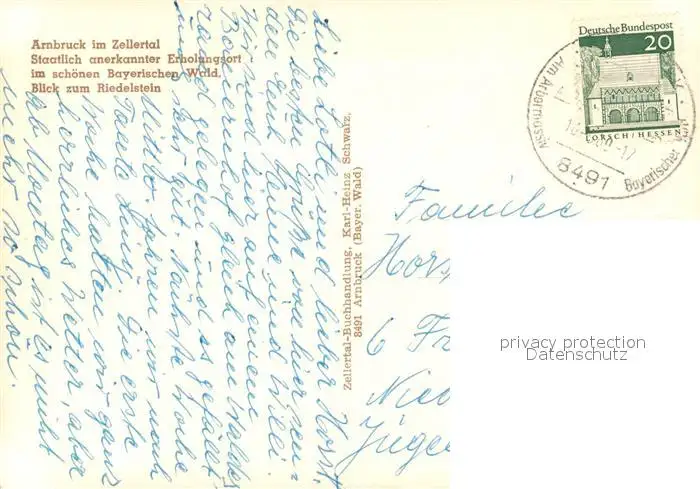 Arnbruck im Zellertal
Staatlich anerkannter Erholungsort
im schönen Bayerischen Wald.
Blick zum Riedelstein
Liebe Lotti und lieber Horst,
die besten Grüße von hier sen-
den Euch Hanne und Willi.
Wir sind hier auf einem
Bauernhof gleich am Walde
gelegen und es gefällt
uns sehr gut. Nächste Woche
Mittw. fahren wir nach
Tante Lisi. Die erste
Woche hatten wir ganz
herrliches Wetter, aber
ab Montag ist es nicht
mehr so schön.
Zellertal-Buchhandlung, Karl-Heinz Schwarz,
8491 Arnbruck (Bayer. Wald)
Deutsche Bundespost
20
LORSCH/HESSEN
8491
Bayerischer
Familie
Hors
6 Fr
Nied
privacy protection
Datenschutz